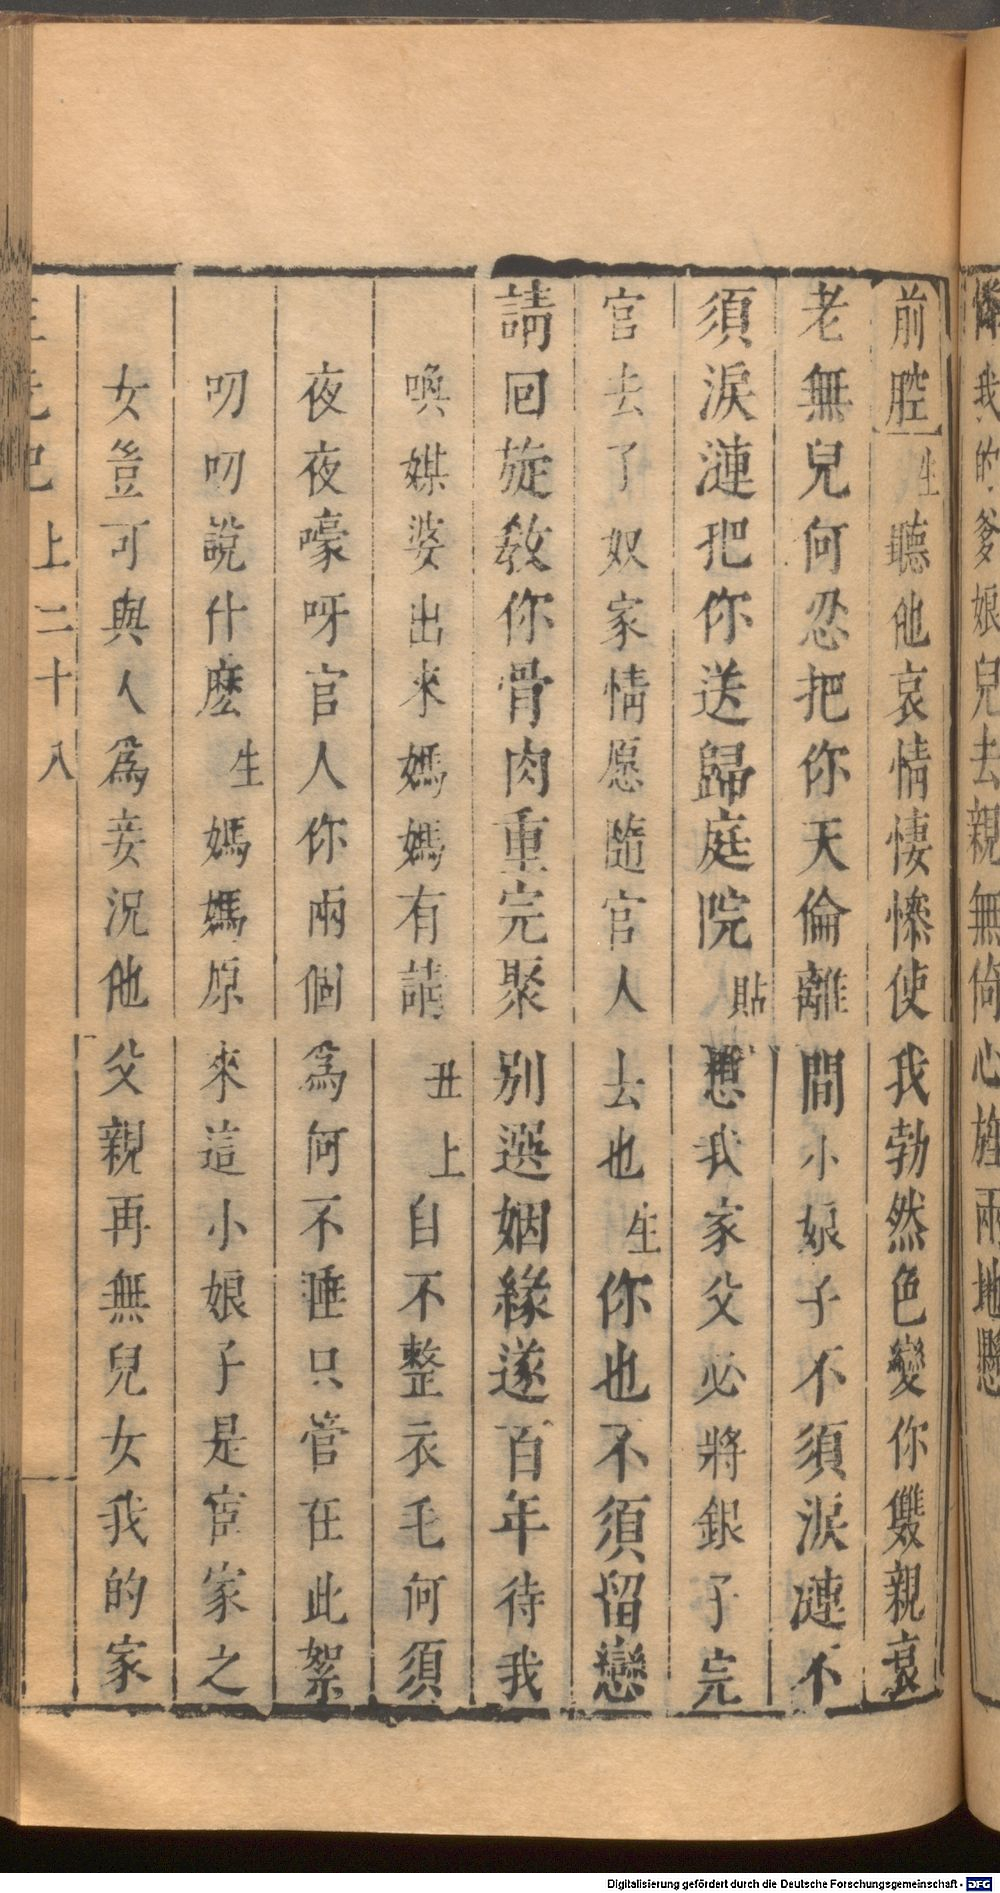 憐我的爹娘兒去親無倚心旌兩地懸
前腔生聽他哀情悽慘使我勃然色變你雙親衰
老無兒何忍把你天倫離間小娘子不須淚漣不
須淚漣把你送歸庭院貼想我家父必將銀子完
官去了奴家情愿隨官人去也生你也不須留戀
請回旋教你骨肉重完聚別選姻緣遂百年待我
喚媒婆出來媽媽有請丑上自不整衣毛何須
夜夜嚎呀官人你兩個爲何不睡只管在此絮
叨叨說什麽生媽媽原來這小娘子是宦家之
女豈可與人爲妾況他父親再無兒女我的家
三元記 上二十八
Digitalisierung gefördert durch die Deutsche Forschungsgemeinschaft - DFG